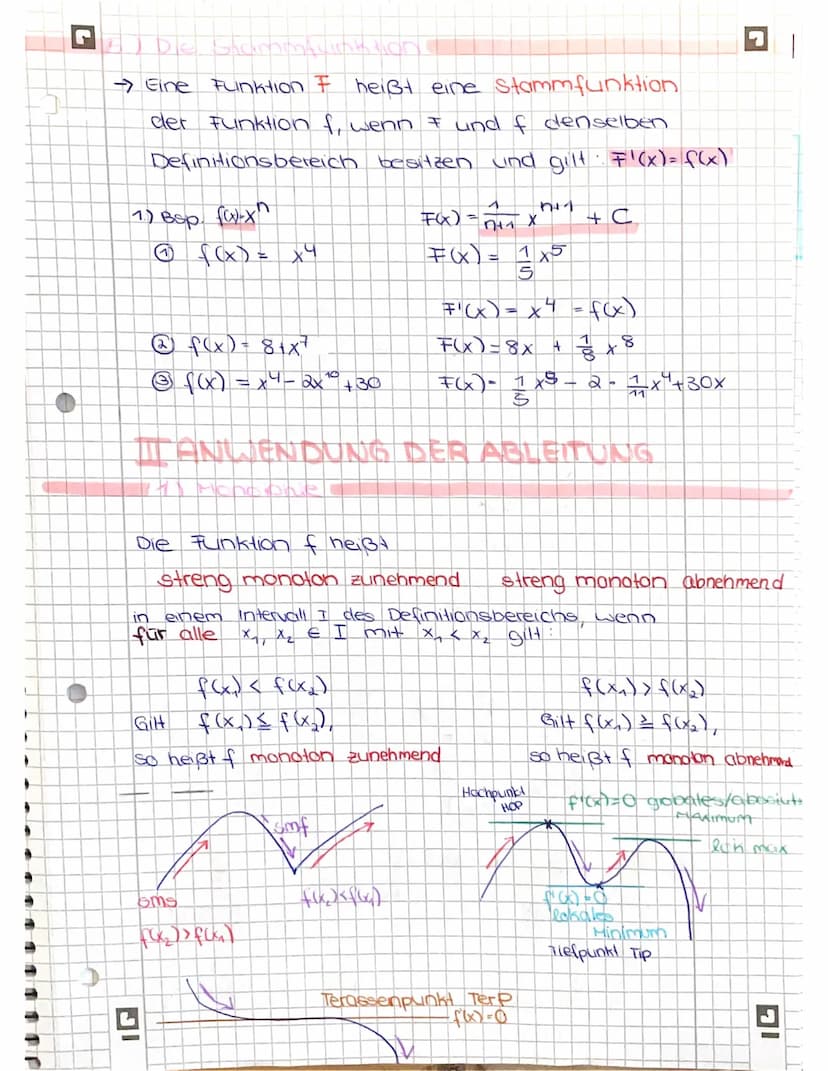 5) Die Stammfunktion
→ Eine Funktion F heißt eine Stammfunktion
der Funktion f, wenn F und f denselben
Definitionsbereich besitzen und gilt: F'(x)=f(x)
1) Bsp. f(x)=xⁿ F(x) = 1/(n+1) xⁿ⁺¹ + C
① f(x) = x⁴ F(x) = 1/5 x⁵
F'(x) = x⁴ = f(x)
② f(x) = 8+x⁷ F(x) = 8x + 1/8 x⁸
③ f(x) = x⁴ - 2x¹⁰ + 30 F(x) = 1/5 x⁵ - 2 · 1/11 x⁴ + 30x
III ANWENDUNG DER ABLEITUNG
1) Monotonie
Die Funktion f heißt
streng monoton zunehmend streng monoton abnehmend
in einem Intervall I des Definitionsbereichs, wenn
für alle x₁, x₂ ∈ I mit x₁ < x₂ gilt:
f(x₁) < f(x₂) f(x₁) > f(x₂)
Gilt f(x₁) ≤ f(x₂), Gilt f(x₁) ≥ f(x₂),
so heißt f monoton zunehmend so heißt f monoton abnehmend
Hochpunkt HOP f'(x)=0 globales/absolut
Maximum
smf
lok max
sms f(x₂)<f(x₁) f'(x)=0
lokales
f(x₂)>f(x₁) Minimum
Tiefpunkt TIP
Terassenpunkt TerP
f'(x)=0